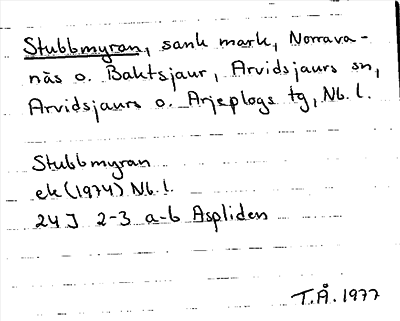 Stubbmyran, sank mark, Norrava-
näs o. Baktsjaur, Arvidsjaurs sn,
Arvidsjaurs o. Arjeplogs tg, Nb. l.
Stubbmyran
ek (1974) Nb. l.
24 J 2-3 a-b Aspliden
T.Å. 1977